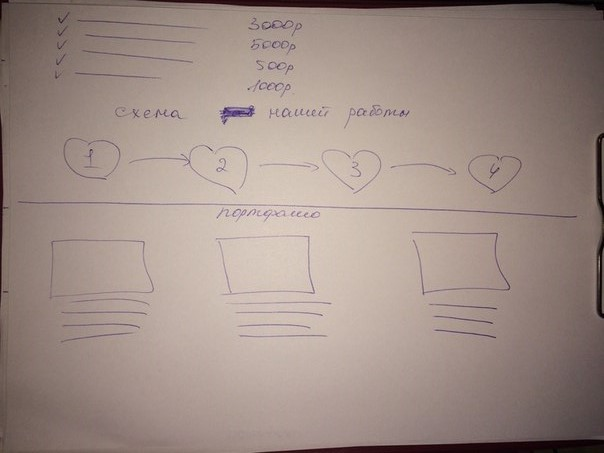 3000р
5000р
500р
1000р.
схема нашей работы
1 2 3 4
портфолио